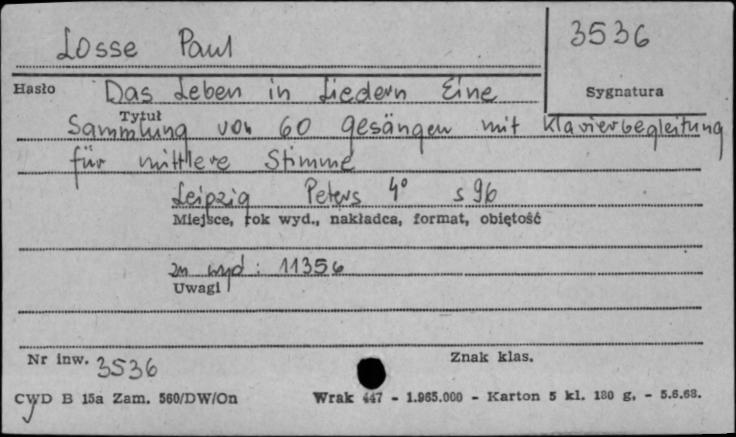 Losse Paul
3536
Hasło
Das Leben in Liedern Eine
Sygnatura
Tytuł
Sammlung von 60 gesängen mit Klavierbegleitung
für mittlere Stimme
Leipzig Peters 4° s 96
Miejsce, rok wyd., nakładca, format, obiętość
zn wyd: 11356
Uwagi
Nr inw. 3536
Znak klas.
CWD B 15a Zam. 560/DW/On
Wrak 447 - 1.965.000 - Karton 5 kl. 180 g. - 5.6.68.